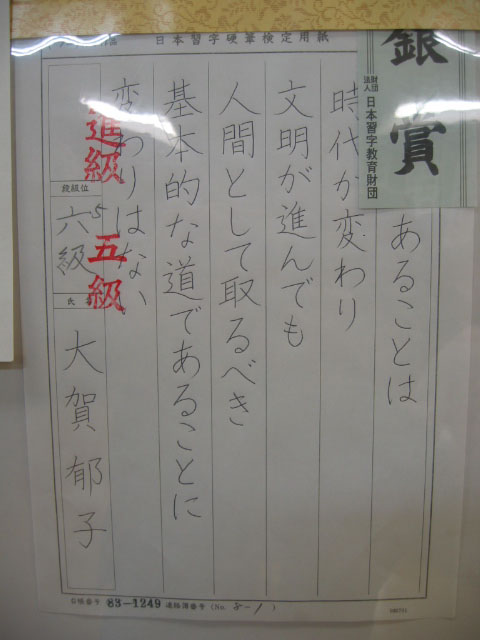 日本習字硬筆検定用紙
銀賞
財団法人 日本習字教育財団
あることは
時代が変わり
文明が進んでも
人間として取るべき
基本的な道であることに
変わりはない
進級 五級
段級位
六級
5
氏名
大賀郁子
会場番号 83-1249 連絡簿番号 (No. 8-1)